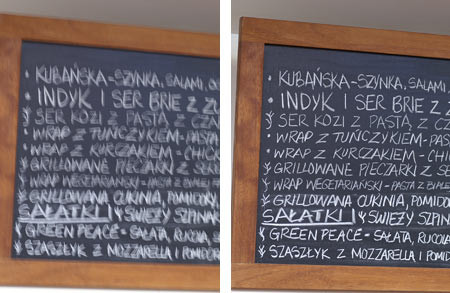 • KUBAŃSKA - SZYNKA, SALAMI,
• INDYK I SER BRIE Z
SER KOZI Z PASTĄ Z
• WRAP Z TUŃCZYKIEM - PASTA
• WRAP Z KURCZAKIEM -
GRILLOWANE PIECZARKI Z
WRAP WEGETARIAŃSKI - PASTA Z BIAŁEJ
GRILLOWANA CUKINIA, POMIDORY
SAŁATKI ŚWIEŻY SZPINAK
GREEN PEACE - SAŁATA, RUCOLA,
SZASZŁYK Z MOZZARELLA I POMIDOR
• KUBAŃSKA - SZYNKA, SALAMI,
• INDYK I SER BRIE Z
SER KOZI Z PASTĄ Z
• WRAP Z TUŃCZYKIEM - PAST
• WRAP Z KURCZAKIEM -
GRILLOWANE PIECZARKI Z
WRAP WEGETARIAŃSKI - PASTA Z
GRILLOWANA CUKINIA, POMIDO
SAŁATKI ŚWIEŻY SZPINA
GREEN PEACE - SAŁATA, RUCOLA
SZASZŁYK Z MOZZARELLA I POMID